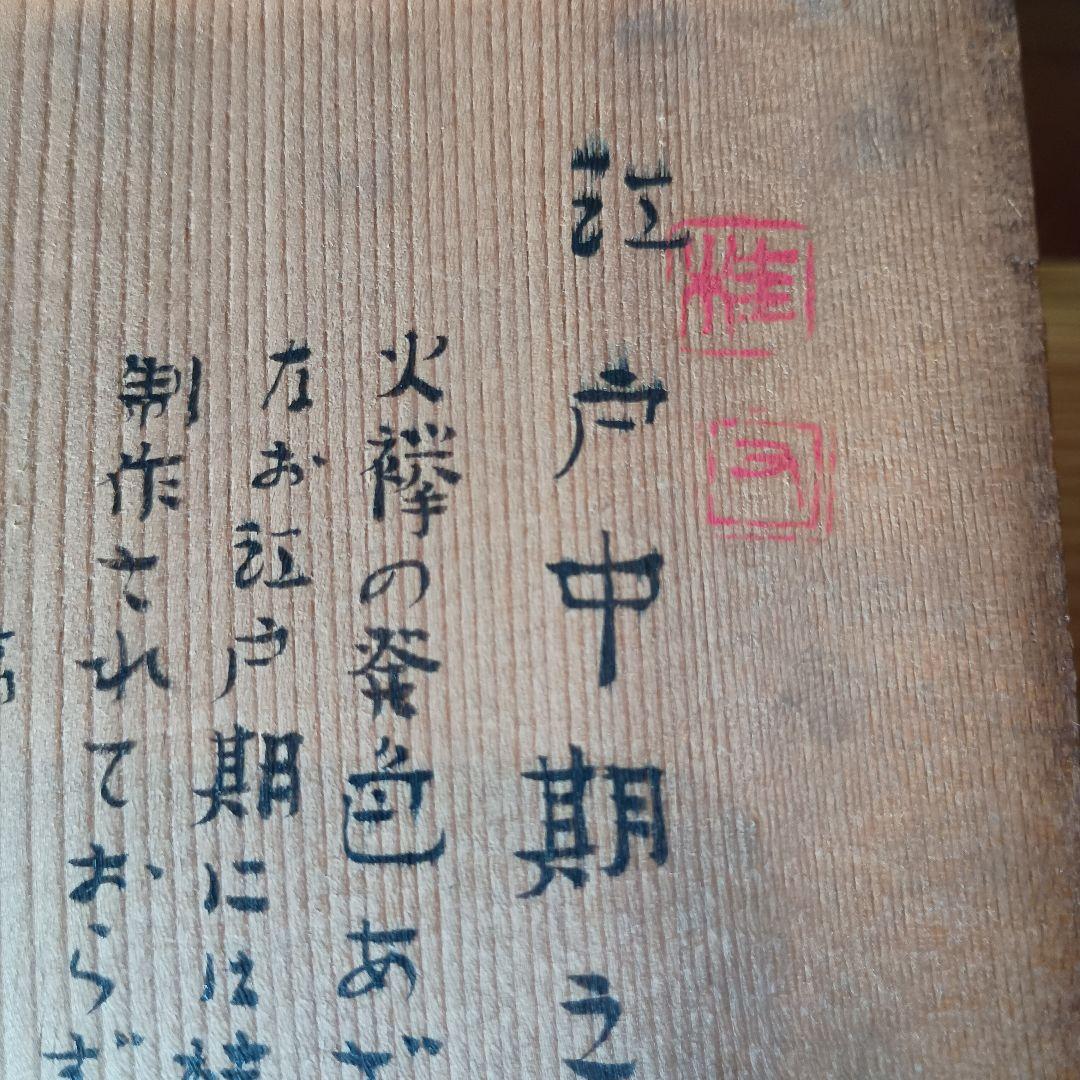 江戸中期之
火襷の発色あざ
なお江戸期には
制作されておらず